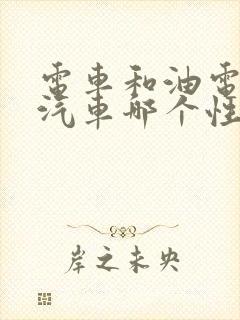 電車和油電
汽車哪个性
岸之未央